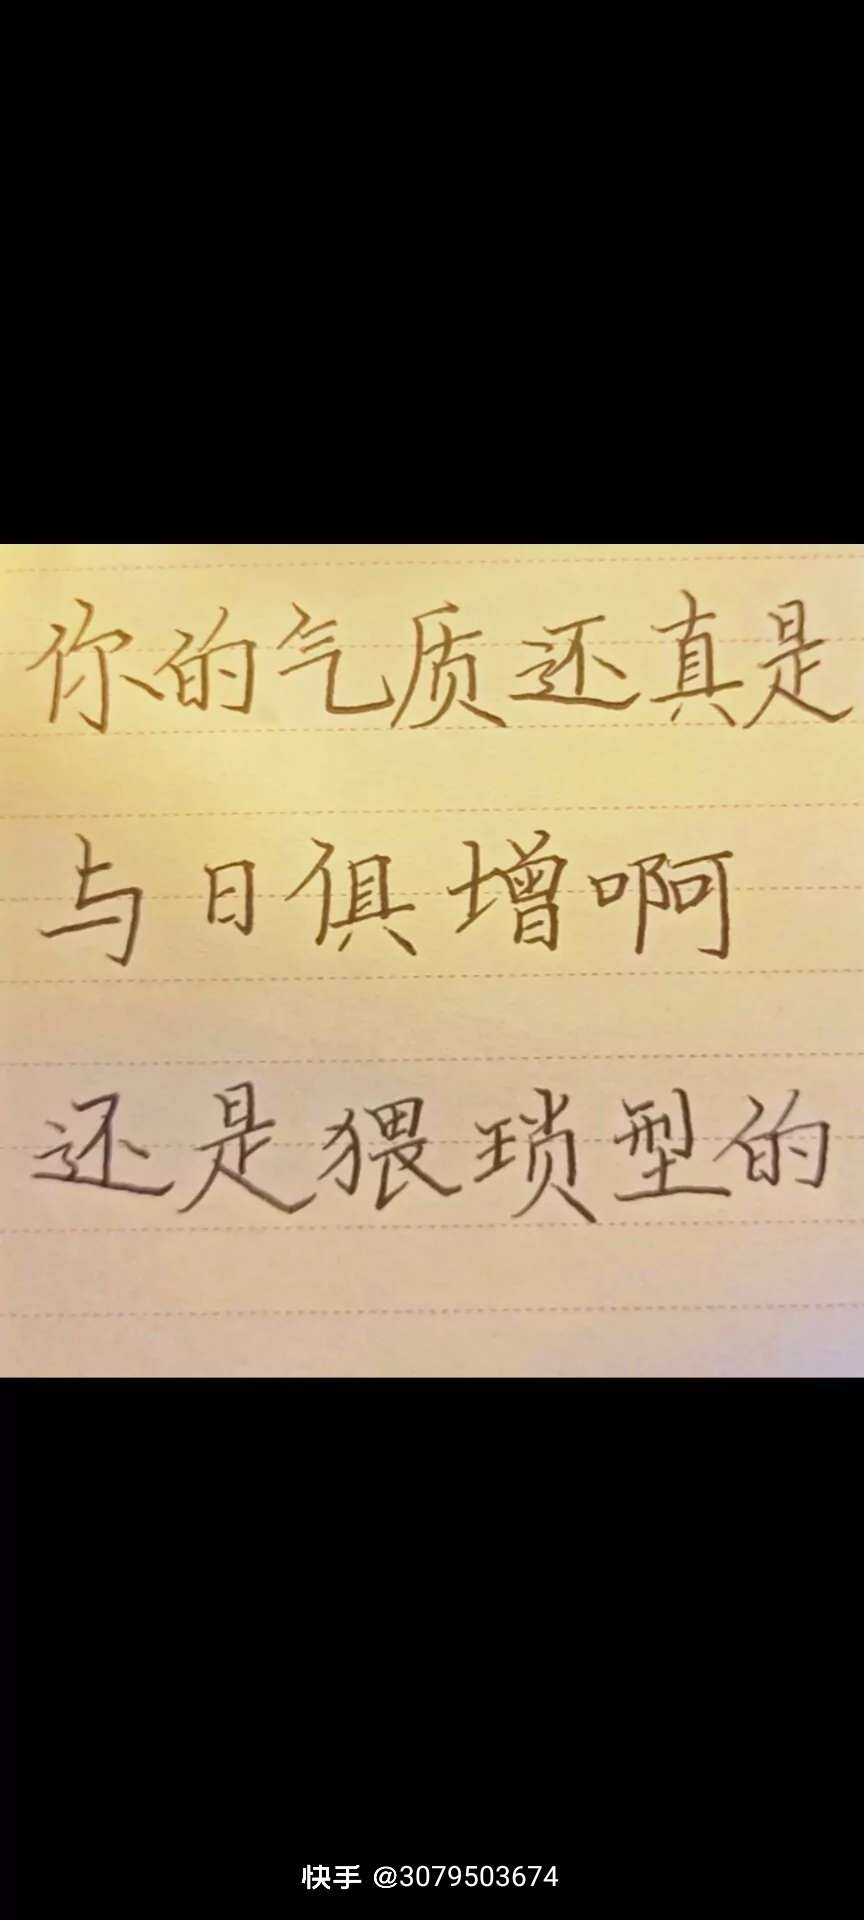 你的气质还真是
与日俱增啊
还是猥琐型的
快手 @3079503674